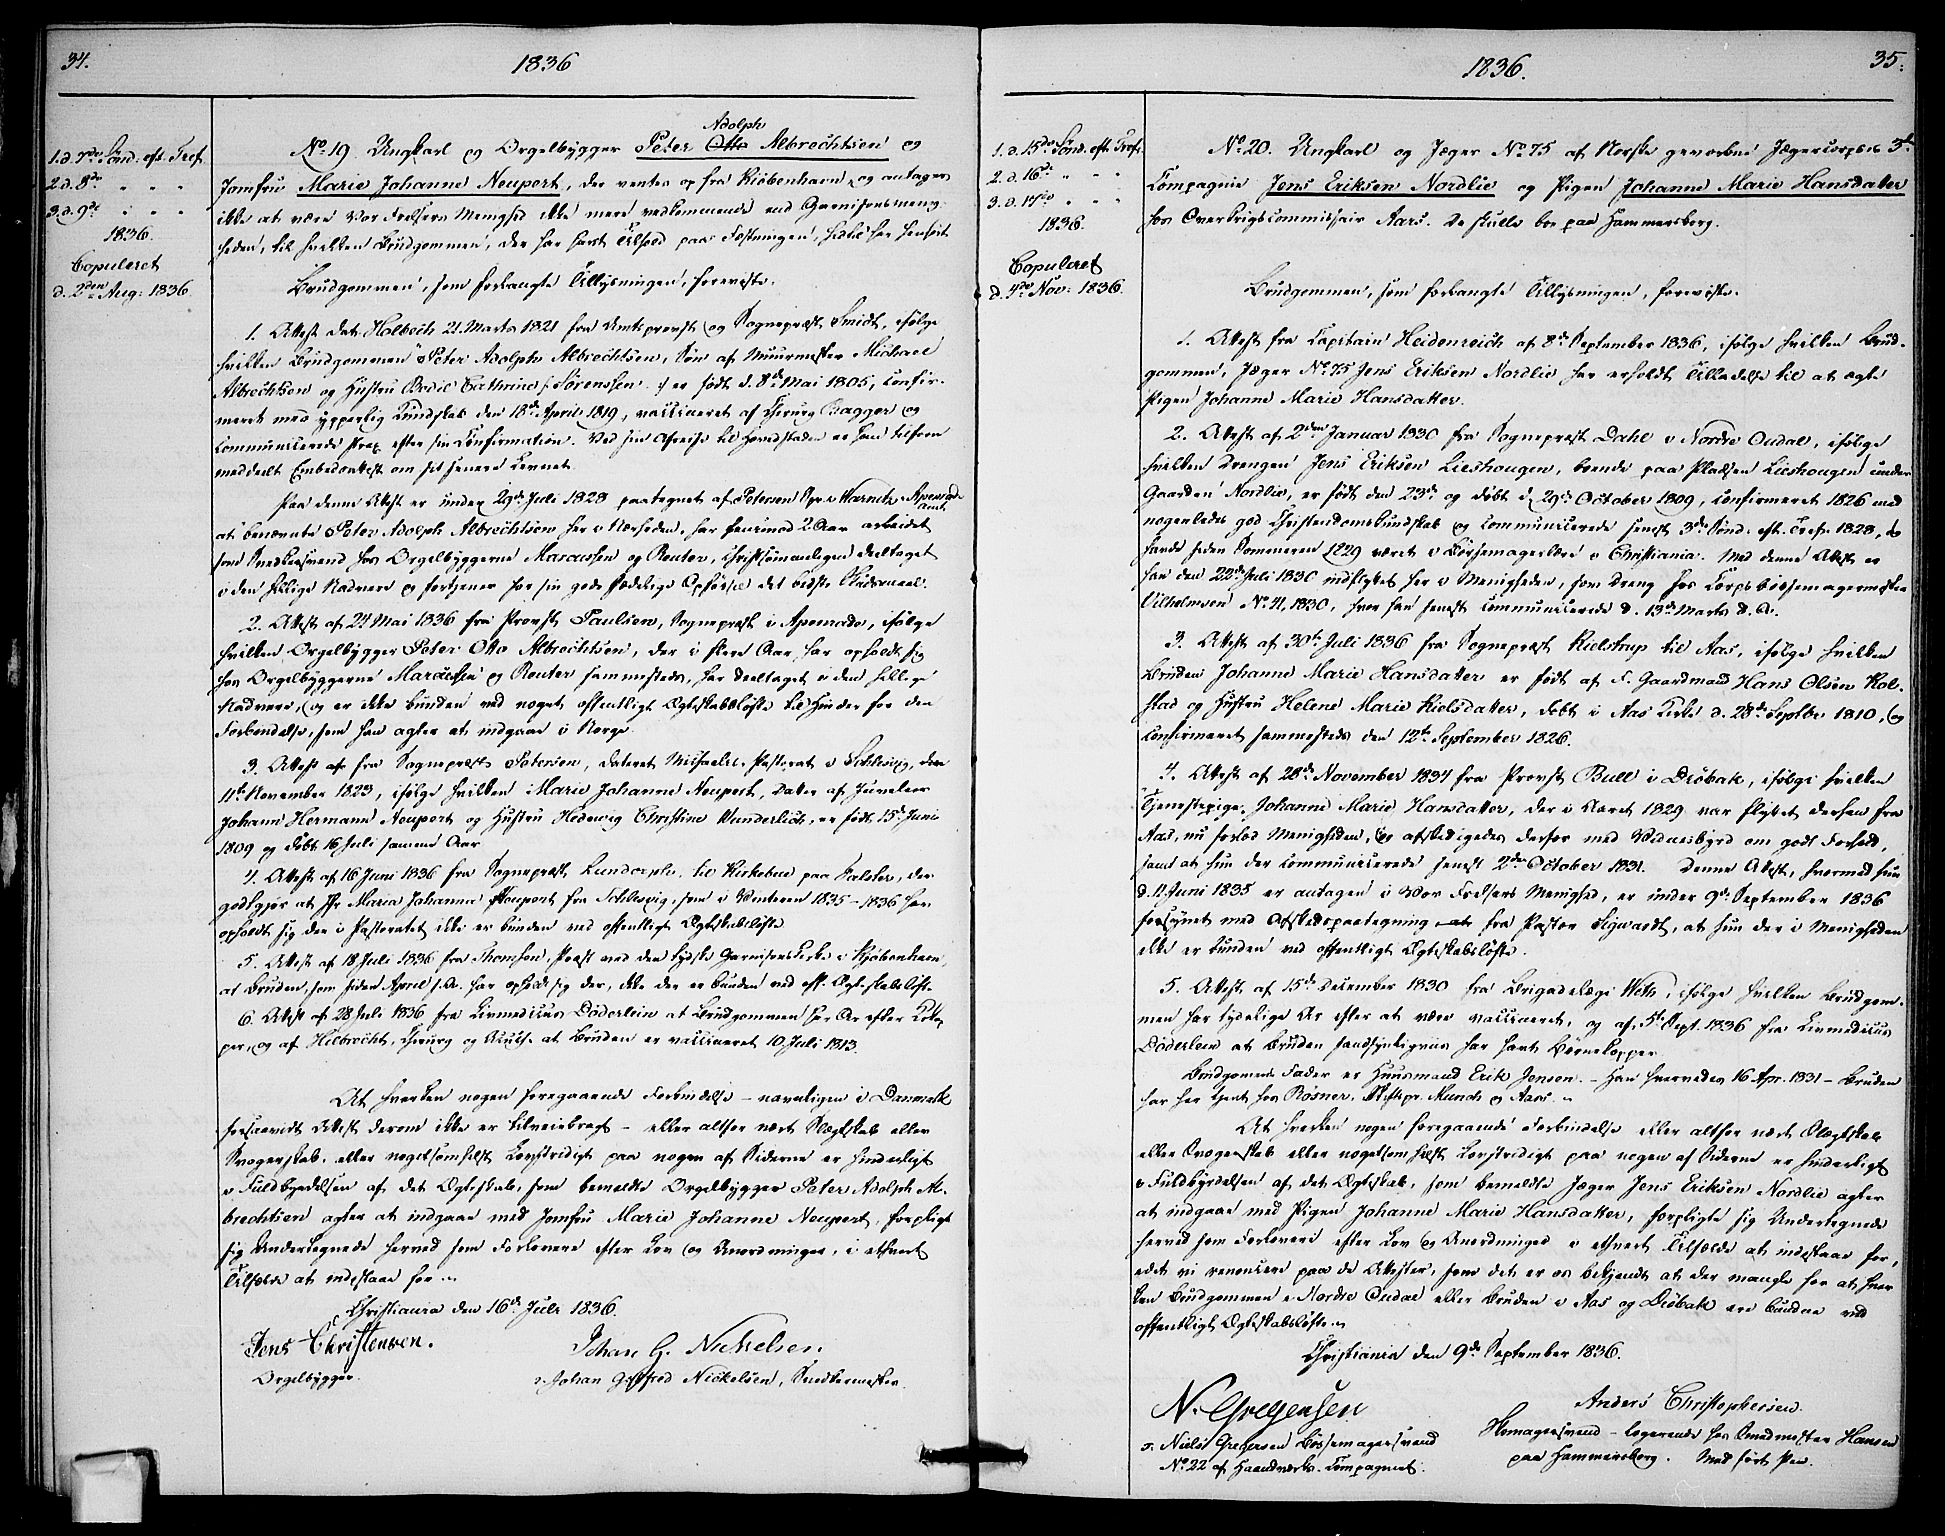 34.
1836
1. d. 7de Sønd. eft. Tref.
2. d. 8de " " "
3. d. 9de " " "
1836.
Copuleret
d. 2den Aug: 1836.
Adolph
No. 19. Ungkarl og Orgelbygger Peter Otto Albrechtsen og
Jomfru Marie Johanne Neupert, der ventes op fra Kiøbenhavn og antages
ikke at være Vor Frelsers Menighed ikke mere vedkommende end Garnisonsmenig-
heden, til hvilken Brudgommen, der har havt Tilhold paa Fæstningen, hidtil har henhørt
Brudgommen, som forlangte Tillysningen, foreviste.
1. Attest dat. Holbech 21. Marts 1821 fra Amtsprovst og Sognepræst Smidt, ifølge
hvilken Brudgommen Peter Adolph Albrechtsen, Søn af Muurmester Michael
Albrechtsen og Hustru Bodil Cathrine f. Sørenssen er født d. 8de Mai 1805, Confir-
meret med ypperlig Kundskab den 18de April 1819, vaccineret af Chirurg Bagger og
communicerede strax efter sin Confirmation. Ved sin Afreise til Hovedstaden er ham tilforn
meddeelt Embedsattest om sit senere Levnet.
Paa denne Attest er under 29de Juli 1828 paategnet af Petersen Spr. i Warnitz Apenrade
Amt,
at benævnte Peter Adolph Albrechtsen her i Nærheden, har henimod 2 Aar arbeidet
som Snedkersvend hos Orgelbyggerne Marcussen og Reuter, Christsømmeligen deeltaget
i den hellige Nadvere og fortjener for sin gode sædelige Opførsel det bedste Skudsmaal.
2. Attest af 24 Mai 1836 fra Provst Paulsen, Sognepræst i Apenrade, ifølge
hvilken Orgelbygger Peter Otto Albrechtsen, der i flere Aar har opholdt sig
hos Orgelbyggerne Marcussen og Reuter sammesteds, har deeltaget i den hellige
Nadvere, og er ikke bunden ved noget offentligt Ægteskabsløfte til Hinder for den
Forbindelse, som han agter at indgaae i Norge.
3. Attest af fra Sognepræst Petersen, dateret Michaelis Pastorat i Schleswig, den
11te November 1823, ifølge hvilken Marie Johanne Neupert, Datter af Juveleer
Johann Hermann Neupert og Hustru Hedewig Christine Wunderlich, er født 15de Juni
1809 og døbt 16 Juli samme Aar
4. Attest af 16 Juni 1836 fra Sognepræst, Lundorph, til Kirkebye paa Falster, der
godtgjør at Jfr. Maria Johanna Neupert fra Schleswig, som i Vinteren 1835-1836 har
opholdt sig der i Pastoratet ikke er bunden ved offentligt Ægteskabsløfte
5. Attest af 18 Juli 1836 fra Thomsen, Præst ved den tydske Garnisons Kirke i Kjøbenhavn,
at Bruden, som siden April f. A. har opholdt sig der, ikke der er bunden ved off. Ægteskabsløfte
6. Attest af 28 Juli 1836 fra Livmedicus Döderlein at Brudgommen har Ar efter Kokop-
per, og af Hilbrecht, Chirurg og Accuch. at Bruden er vaccineret 10 Juli 1813.
At hverken nogen foregaaende Forbindelse - navnligen i Danmark
forsaavidt Attest derom ikke er tilveiebragt - eller altfor nært Slægtskab eller
Svogerskab, eller noget somhelst Lovstridigt paa nogen af Siderne er hinderligt
i Fuldbyrdelsen af det Ægteskab, som bemeldte Orgelbygger Peter Adolph Al-
brechtsen agter at indgaae med Jomfru Marie Johanne Neupert, forpligte
sig Undertegnede herved som Forlovere efter Lov og Anordninger, i ethvert
Tilfælde at indestaae for
Christiania den 16de Juli 1836.
Jens Christensen.
Orgelbygger.
Johan G. Nickelsen.
Johan Gottfred Nickelsen, Snedkermester.
35.
1836.
1. d. 15de Sønd. eft. Tref.
2. d. 16de " " "
3. d. 17de " " "
1836.
Copuleret
d. 4de Nov: 1836.
No. 20. Ungkarl og Jæger No. 75 af Norske gevorbne Jægercorpses 3de
Compagnie Jens Eriksen Nordlie og Pigen Johanne Marie Hansdatter
hos Overkrigscommissair Aars. De skulle boe paa Hammersborg.
Brudgommen, som forlangte Tillysningen, foreviste.
1. Attest fra Capitain Heidenreich af 8de September 1836, ifølge hvilken Brud-
gommen, Jæger No. 75 Jens Eriksen Nordlie har erholdt Tilladelse til at ægte
Pigen Johanne Marie Hansdatter.
2. Attest af 2den Januar 1830 fra Sognepræst Dahl i Nordre Oudal, ifølge
hvilken Drengen Jens Eriksen Lieshougen, boende paa Pladsen Lieshougen under
Gaarden Nordlie, er født den 23de og døbt d. 29de October 1809, confirmeret 1826 med
nogenledes god Christendomskundskab og communicerede senest 3de Sønd. eft. Tref. 1828, og
havde siden Sommeren 1829 været i Bøssemagerlære i Christiania. Med denne Attest er
han den 22de Juli 1830 indflyttet her i Menigheden, som Dreng hos Corpsbøssemagermester
Vilhelmsen No. 41, 1830, hvor han senest communicerede d. 13de Marts d. A.
3. Attest af 30te Juli 1836 fra Sognepræst Kielstrup til Aas, ifølge hvilken
Bruden Johanne Marie Hansdatter er født af F. Gaardmand Hans Olsen Kol-
stad og Hustru Helene Marie Kielsdatter, døbt i Aas Kirke d. 23de Septbr 1810, og
Confirmeret sammesteds den 12te September 1826.
4. Attest af 28de November 1834 fra Provst Bull i Drøbak, ifølge hvilken
Tjenestepige Johanne Marie Hansdatter, der i Aaret 1829 var flyttet dertil fra
Aas, nu forlod Menigheden, og afskedigedes derfor med Vidnesbyrd om godt Forhold,
samt at hun der communicerede senest 2den October 1831. Denne Attest, hvormed hun
d. 11 Juni 1835 er antagen i Vor Frelsers Menighed, er under 9de September 1836
forsynet med Afskedspaategning fra Pastor Sigwardt, at hun der i Menigheden
ikke er bunden ved offentligt Ægteskabsløfte.
5. Attest af 15de December 1830 fra Brigadelæge Weth, ifølge hvilken Brudgom-
men har tydelige Ar efter at være vaccineret, og af 5te Sept. 1836 fra Livmedicus
Döderlein at Bruden sandsynligviis har havt Børnekopper
Brudgommens Fader er Huusmand Erik Jensen. - Han hvervedes 16 Apr. 1831 - Bruden
har her tjent hos Rosner, Stiftspr. Munch og Aars. -
At hverken nogen foregaaende Forbindelse eller altfor nært Slægtskab
eller Svogerskab eller noget som helst Lovstridigt paa nogen af Siderne er hinderligt
i Fuldbyrdelsen af det Ægteskab, som bemeldte Jæger Jens Eriksen Nordlie agter
at indgaae med Pigen Johanne Marie Hansdatter, forpligte sig Undertegnede
herved som Forlovere efter Lov og Anordninger i ethvert Tilfælde at indestaae for,
idet vi renoncere paa de Attester, som det er os bekjendt at der mangle for at hver-
ken Brudgommen i Nordre Oudal eller Bruden i Aas og Drøbak ere bundne ved
offentligt Ægteskabsløfte
Christiania den 9de September 1836.
N. Gregersen
Niels Gregersen Bøssemagersvend
No. 22 af Haandværks-Compagniet.
Anders Christophersen.
Hjemagersvend - logerende hos Smedmester Hansen
paa Hammersborg. Med ført Pen.